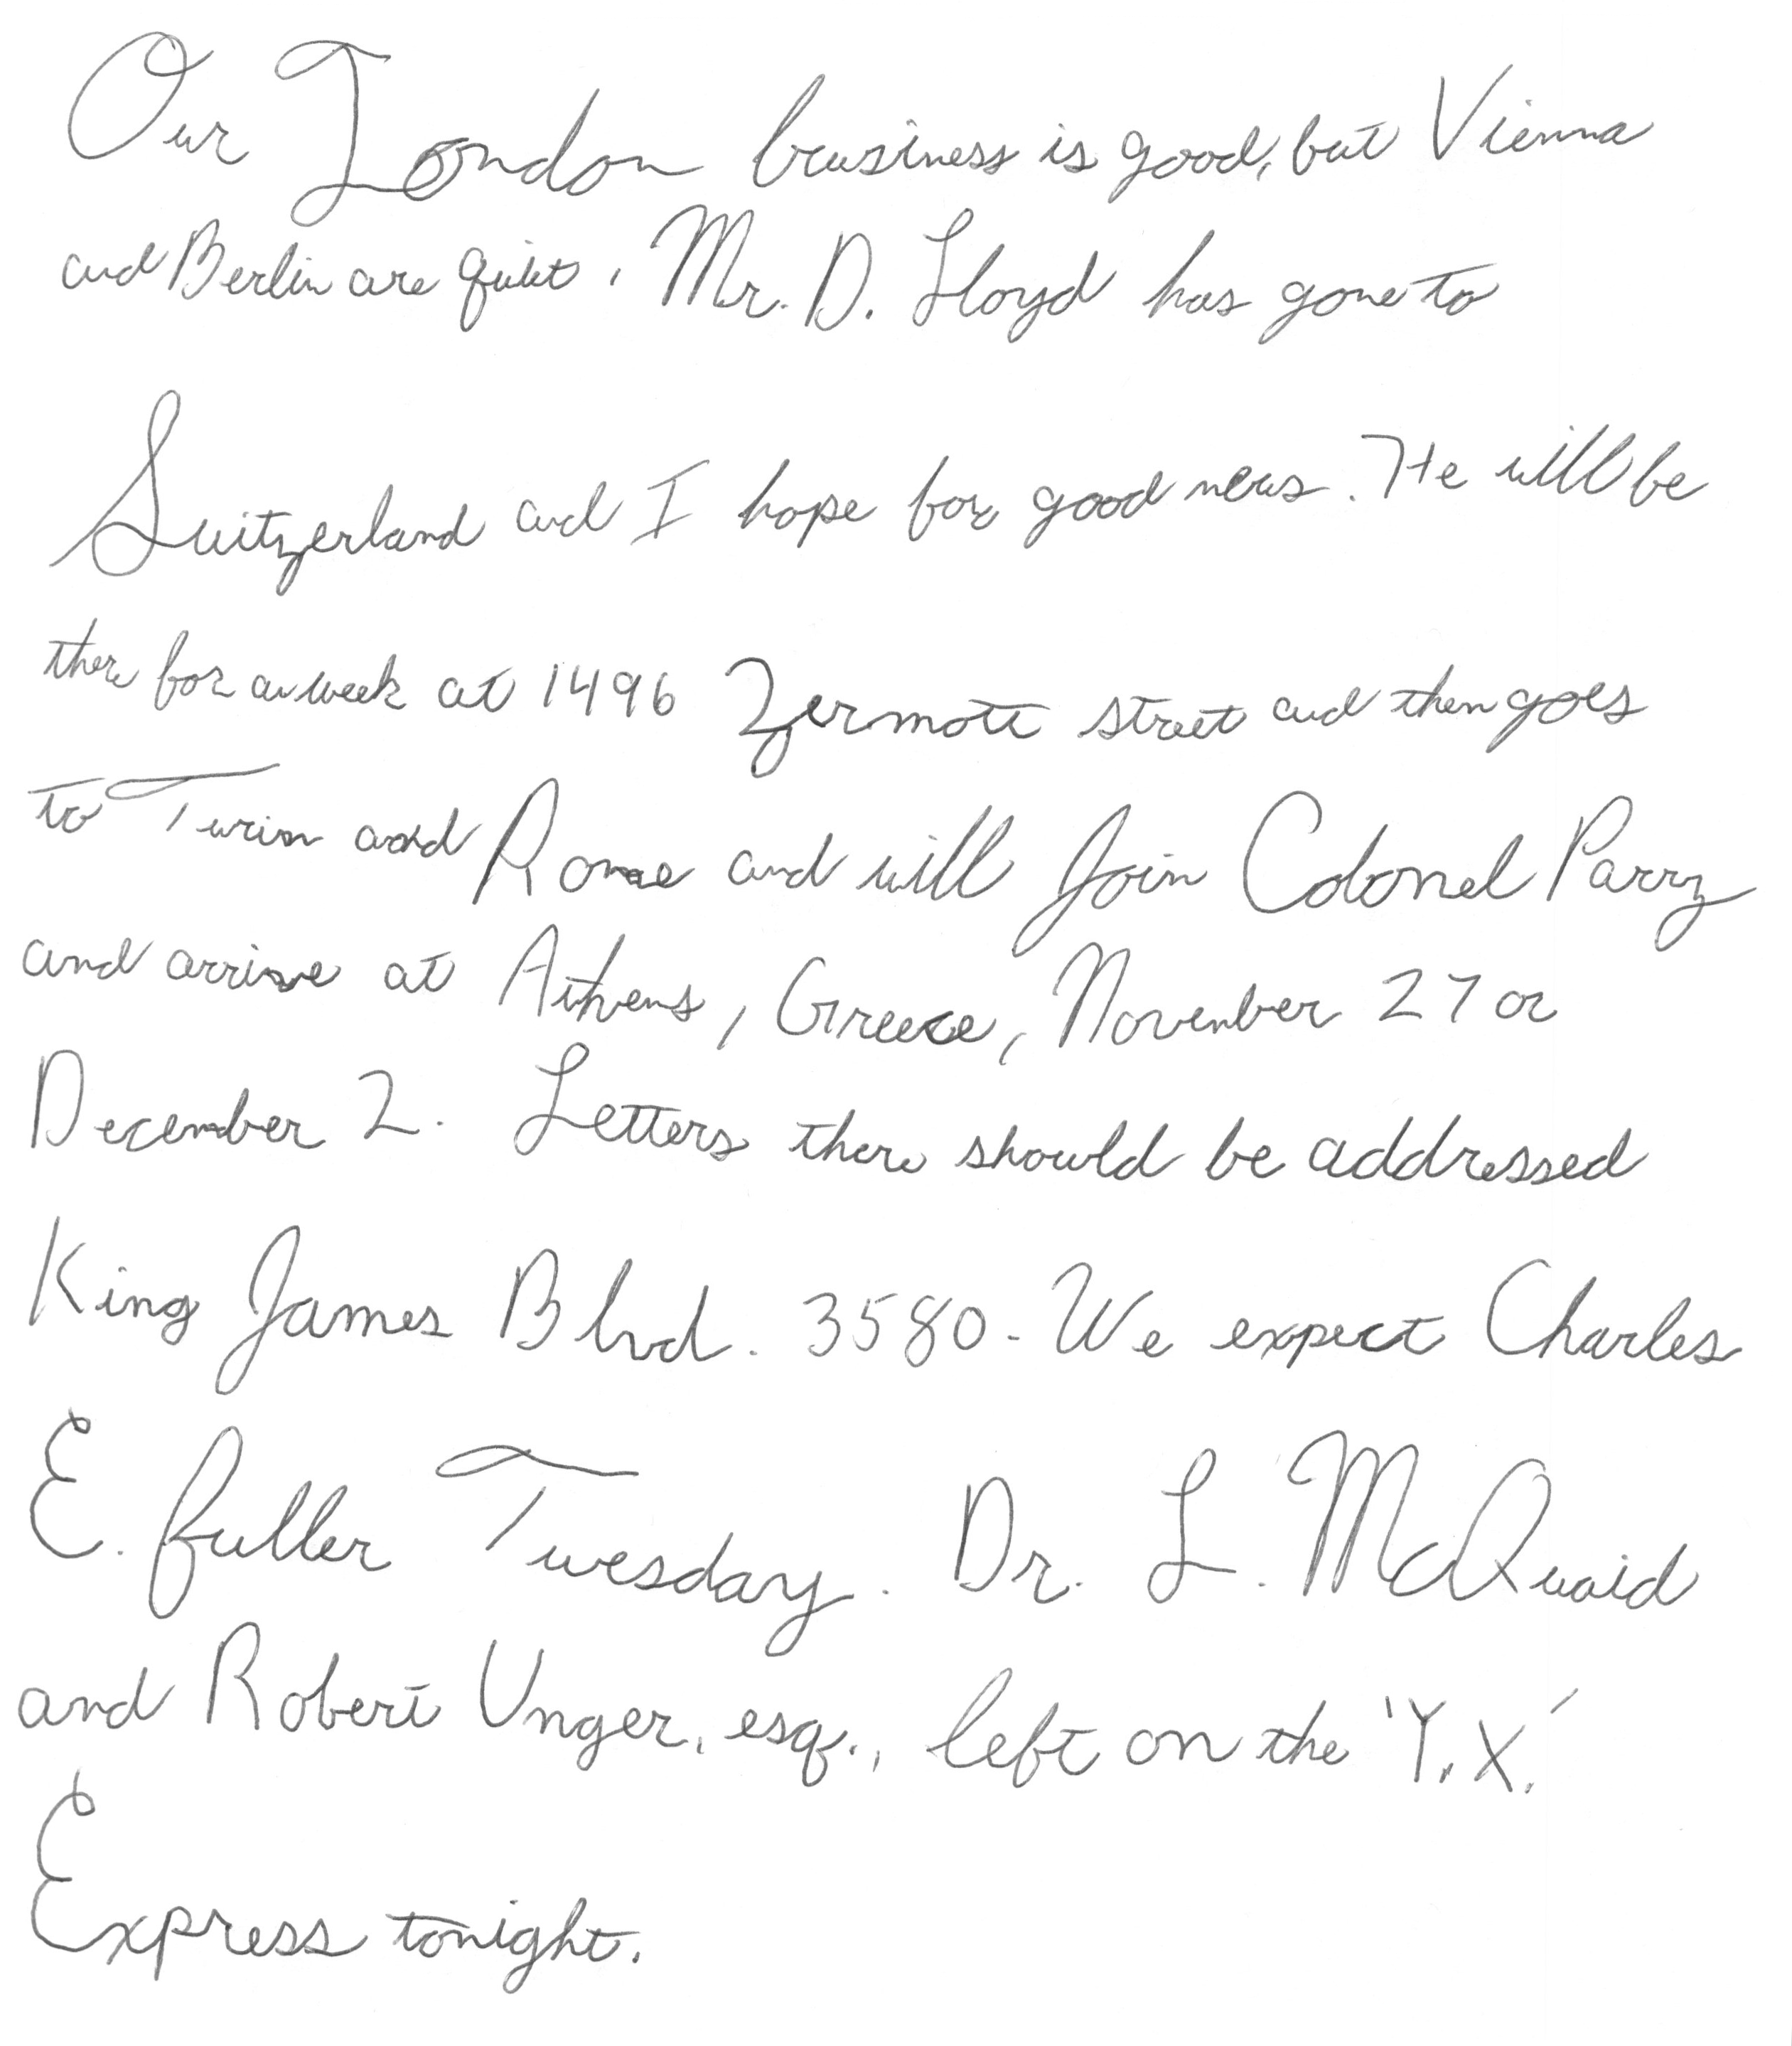 Our London business is good, but Vienna
and Berlin are quiet. Mr. D. Lloyd has gone to
Switzerland and I hope for good news. He will be
there for a week at 1496 Zermott street and then goes
to Turin and Rome and will Join Colonel Parry
and arrive at Athens, Greece, November 27 or
December 2. Letters there should be addressed
King James Blvd. 3580. We expect Charles
E. Fuller Tuesday. Dr. L. McQuaid
and Robert Unger, esq., left on the 'Y.X.'
Express tonight.